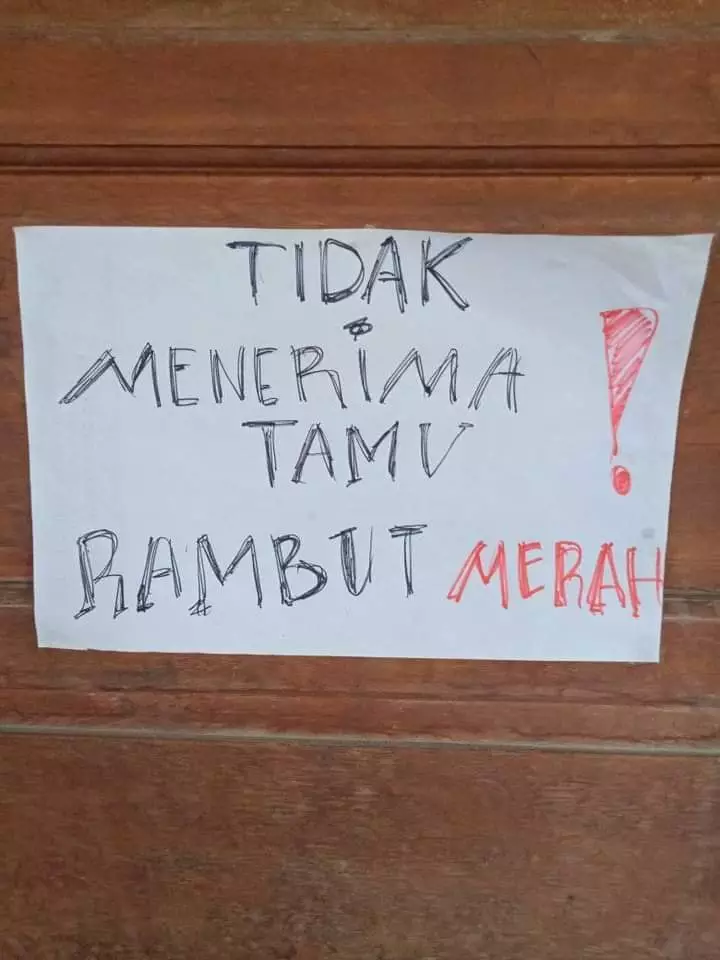 TIDAK
MENERIMA
TAMU
RAMBUT MERAH
!